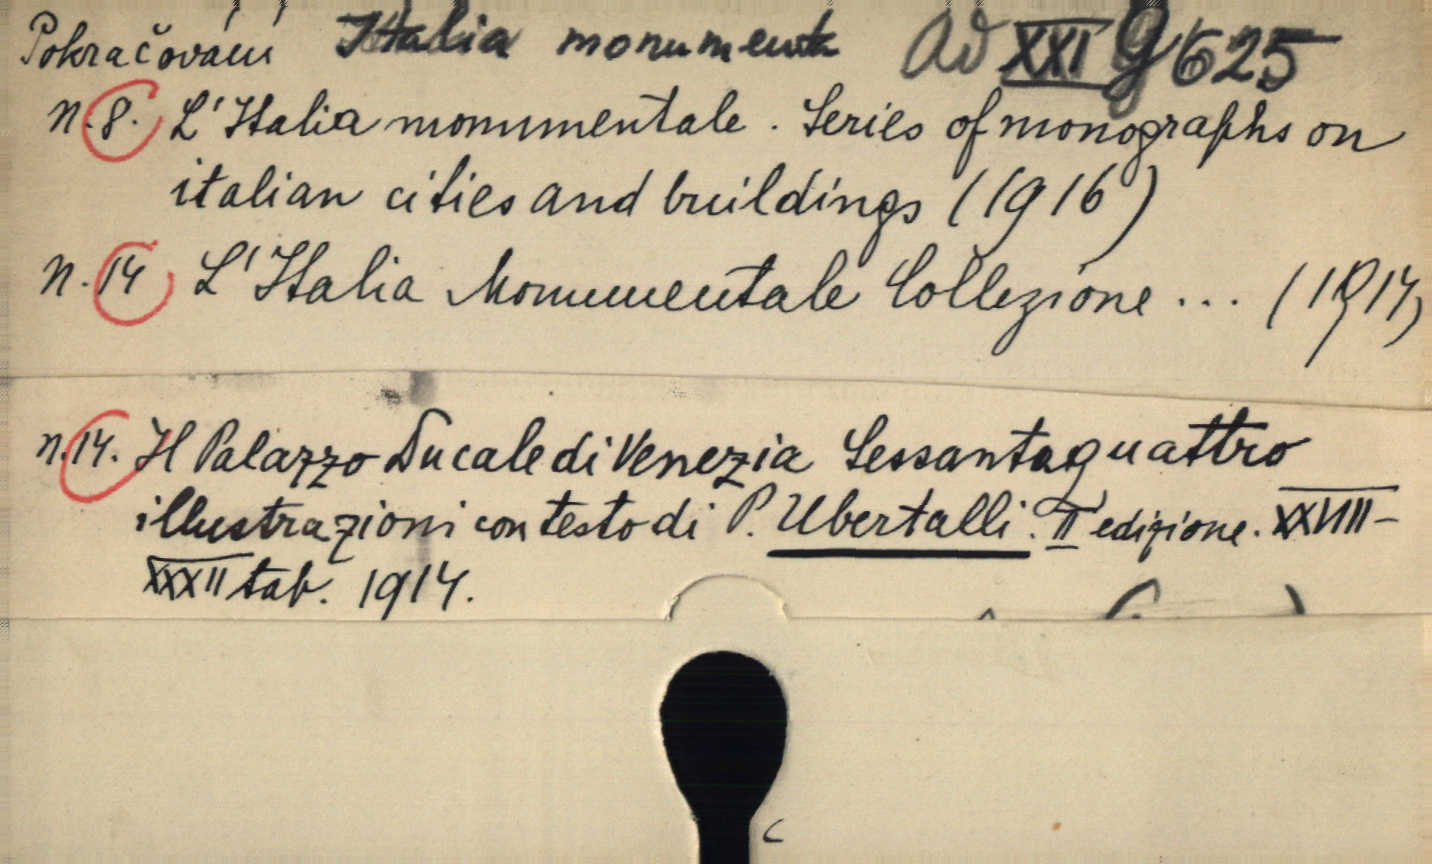 Pokračování Italia monumenta ad XXI g 625
n. 8. L'Italia monumentale. Series of monographs on
italian cities and buildings (1916)
n. 14 L'Italia Monumentale Collezione ... (1914)
n. 14. Il Palazzo Ducale di Venezia Sessantaquattro
illustrazioni con testo di P. Ubertalli. II edizione. XXVIII-
XXXII tab. 1914.